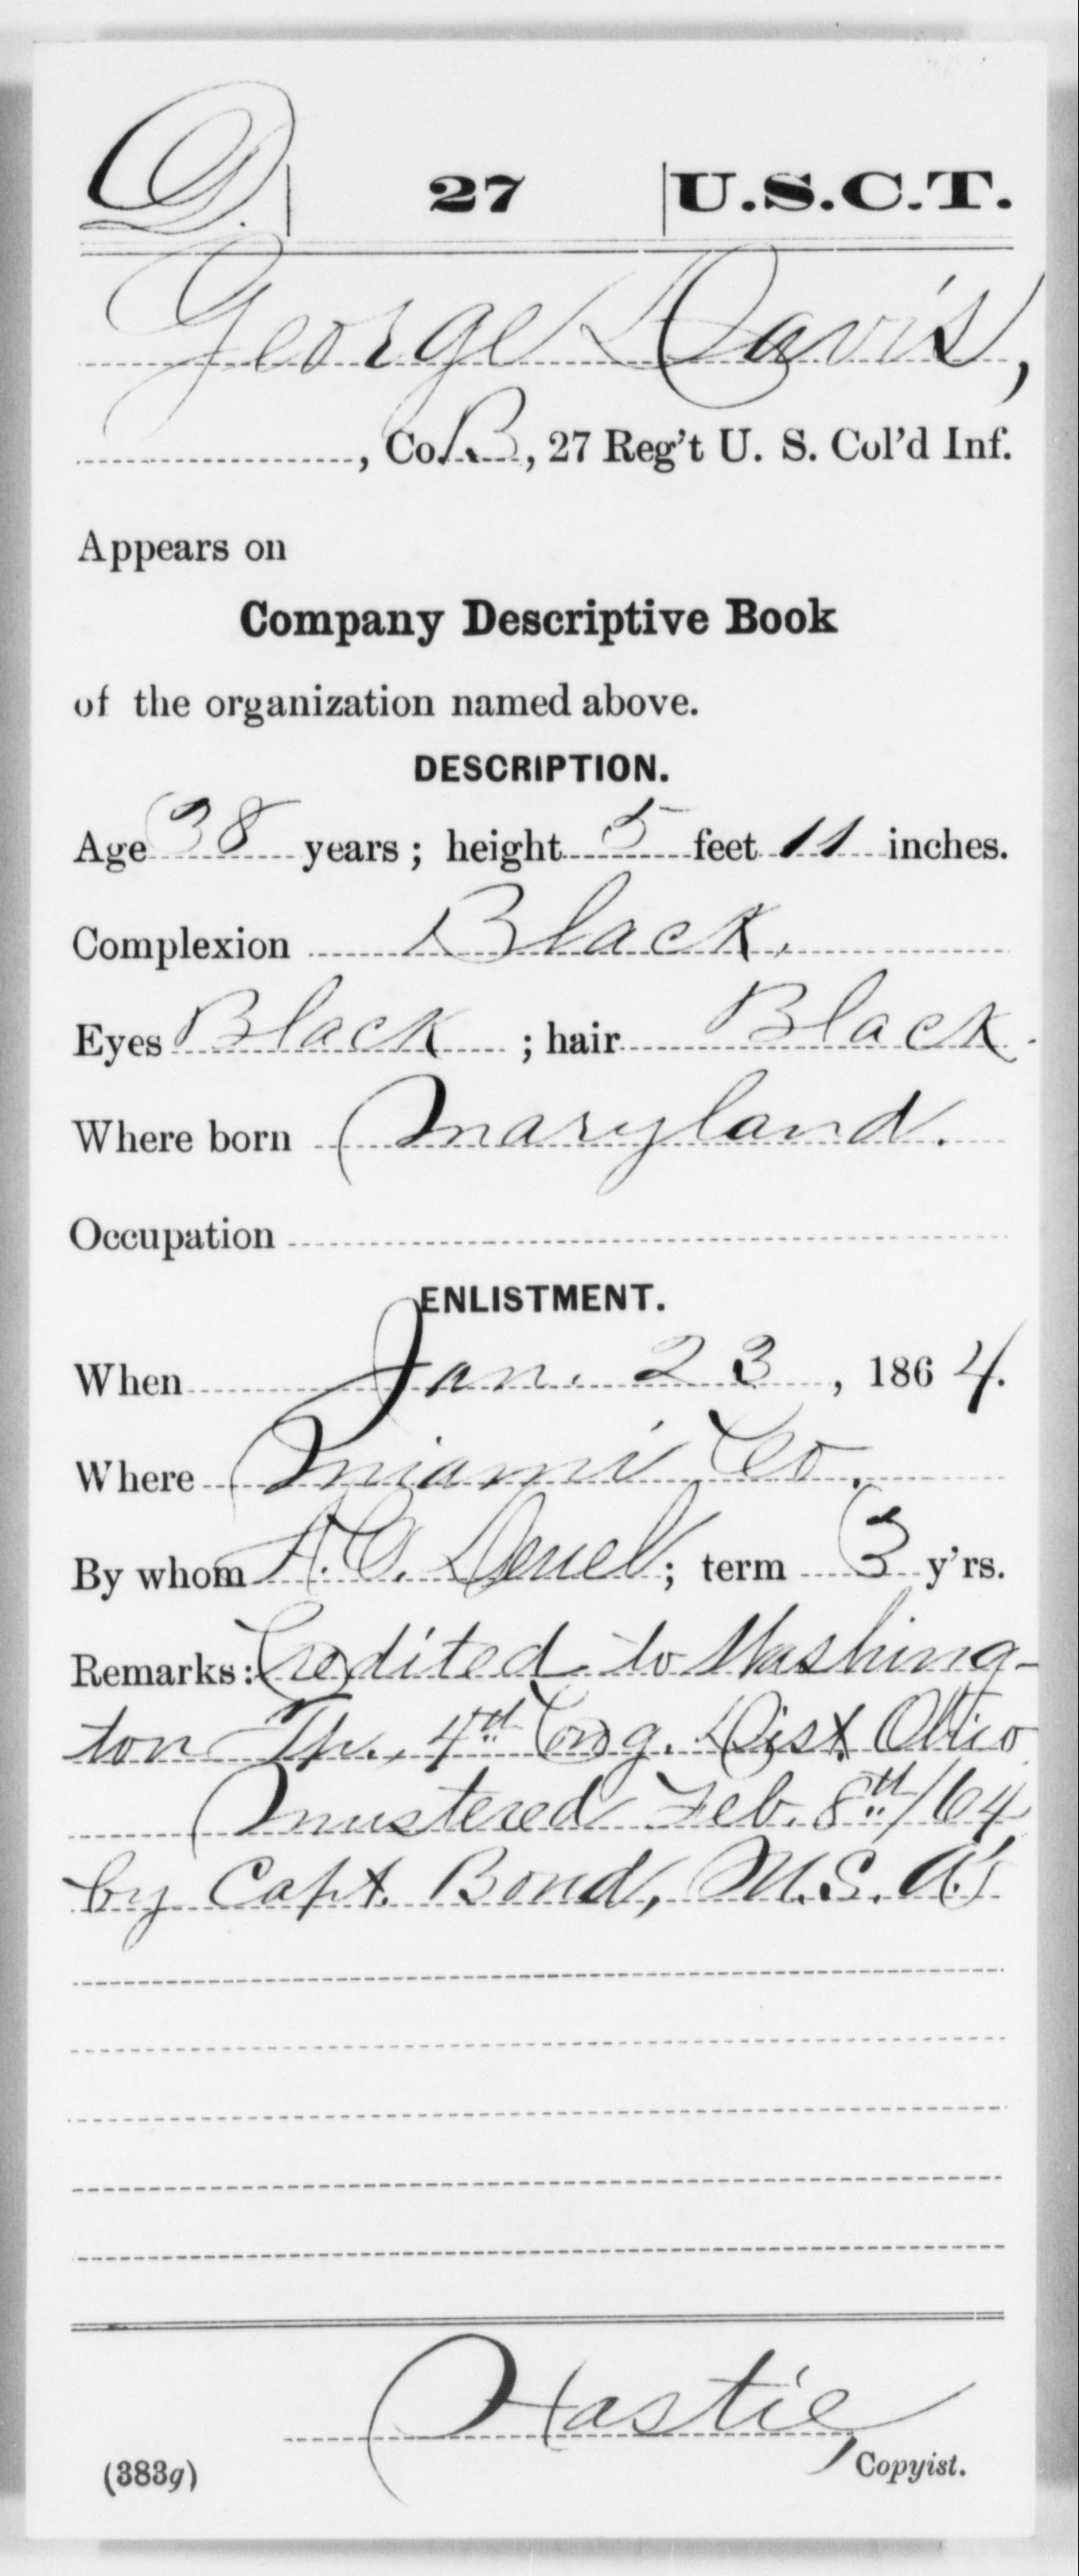 D. | 27 | U.S.C.T.
George Davis,
, Co. B, 27 Reg't U. S. Col'd Inf.
Appears on
Company Descriptive Book
of the organization named above.
DESCRIPTION.
Age 38 years; height 5 feet 11 inches.
Complexion Black.
Eyes Black ; hair Black.
Where born Maryland.
Occupation
ENLISTMENT.
When Jan. 23, 1864.
Where Miami Co.
By whom A. C. Deuel; term 3 y'rs.
Remarks: Credited to Washing-
ton Tp., 4th Cong. Dist. Ohio
Mustered Feb. 8th/64
by Capt. Bond, U.S.A.
Hastie,
(383g) Copyist.